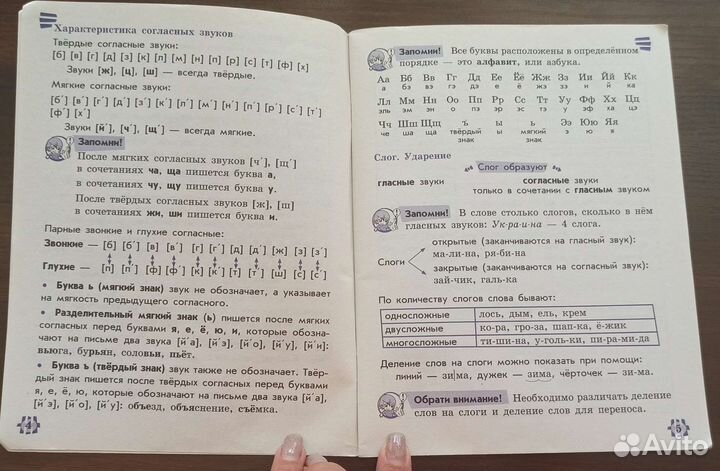 Характеристика согласных звуков
Твёрдые согласные звуки:
[б] [в] [г] [д] [з] [к] [л] [м] [н] [п] [р] [с] [т] [ф] [х]
Звуки [ж], [ц], [ш] — всегда твёрдые.
Мягкие согласные звуки:
[б´] [в´] [г´] [д´] [з´] [к´] [л´] [м´] [н´] [п´] [р´] [с´] [т´]
[ф´] [х´]
Звуки [й´], [ч´], [щ´] — всегда мягкие.
Запомни!
После мягких согласных звуков [ч´], [щ´]
в сочетаниях ча, ща пишется буква а,
в сочетаниях чу, щу пишется буква у.
После твёрдых согласных звуков [ж], [ш]
в сочетаниях жи, ши пишется буква и.
Парные звонкие и глухие согласные:
Звонкие — [б] [б´] [в] [в´] [г] [г´] [д] [д´] [ж] [з] [з´]
Глухие — [п] [п´] [ф] [ф´] [к] [к´] [т] [т´] [ш] [с] [с´]
• Буква ь (мягкий знак) звук не обозначает, а указывает
на мягкость предыдущего согласного.
• Разделительный мягкий знак (ь) пишется после мягких
согласных перед буквами я, е, ё, ю, и, которые обозна-
чают на письме два звука [й´а], [й´э], [й´о], [й´у], [й´и]:
вьюга, бурьян, соловьи, пьёт.
• Буква ъ (твёрдый знак) звук также не обозначает. Твёр-
дый знак пишется после твёрдых согласных перед буквами
я, е, ё, ю, которые обозначают на письме два звука [й´а],
[й´э], [й´о], [й´у]: объезд, объяснение, съёмка.
4
Запомни! Все буквы расположены в определённом
порядке — это алфавит, или азбука.
Аа Бб Вв Гг Дд Ее Ёё Жж Зз Ии Йй Кк
а бэ вэ гэ дэ е ё жэ зэ и й ка
Лл Мм Нн Оо Пп Рр Сс Тт Уу Фф Хх Цц
эль эм эн о пэ эр эс тэ у эф ха цэ
Чч Шш Щщ ъ ы ь Ээ Юю Яя
че ша ща твёрдый ы мягкий э ю я
знак знак
Слог. Ударение
Слог образуют
гласные звуки согласные звуки
только в сочетании с гласным звуком
Запомни! В слове столько слогов, сколько в нём
гласных звуков: Ук-ра-и-на — 4 слога.
открытые (заканчиваются на гласный звук):
ма-ли-на, ря-би-на
Слоги
закрытые (заканчиваются на согласный звук):
зай-чик, галь-ка
По количеству слогов слова бывают:
односложные лось, дым, ель, крем
двусложные ко-ра, гро-за, шап-ка, ё-жик
многосложные ти-ши-на, у-голь-ки, пи-ра-ми-да
Деление слов на слоги можно показать при помощи:
линий — зи|ма, дужек — зима, чёрточек — зи-ма.
Обрати внимание! Необходимо различать деление
слов на слоги и деление слов для переноса.
5
Avito